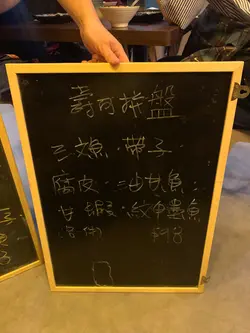 壽司拼盤
三文魚·帶子·
腐皮·油甘魚·
甘蝦·紋甲墨魚